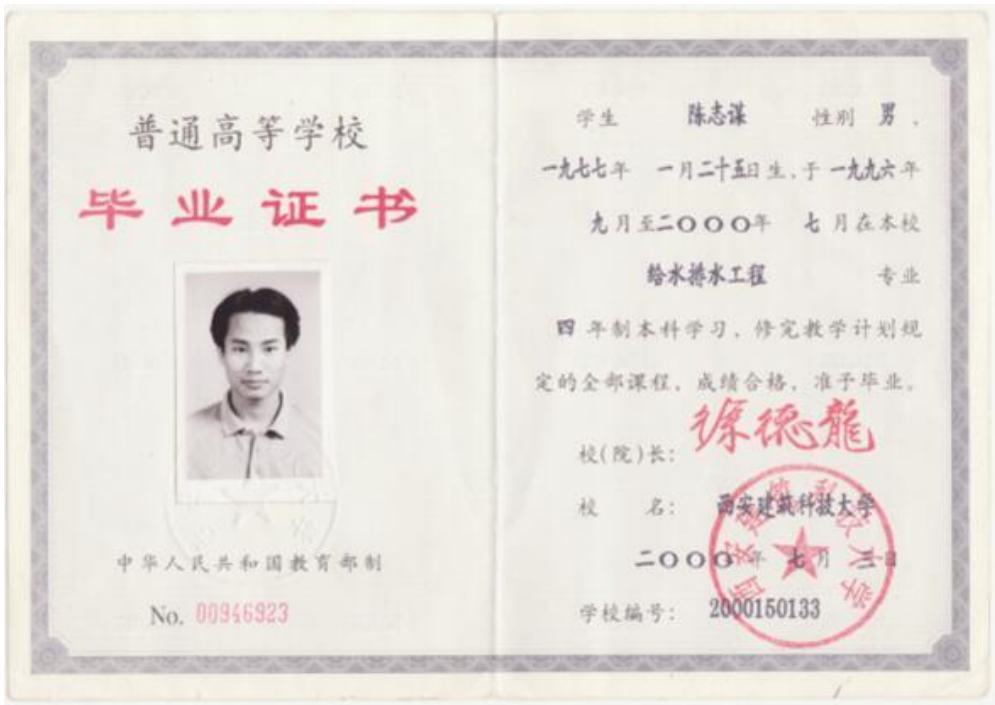 普通高等学校
毕业证书
中华人民共和国教育部制
No. 00946923
学生 陈志谋 性别 男，
一九七七年 一月二十五日生，于一九九六年
九月至二〇〇〇年 七月在本校
给水排水工程 专业
四年制本科学习，修完教学计划规
定的全部课程，成绩合格，准予毕业。
校(院)长： 徐德龍
校 名： 西安建筑科技大学
二〇〇〇年 七月 三日
学校编号： 2000150133
西安建筑科技大学